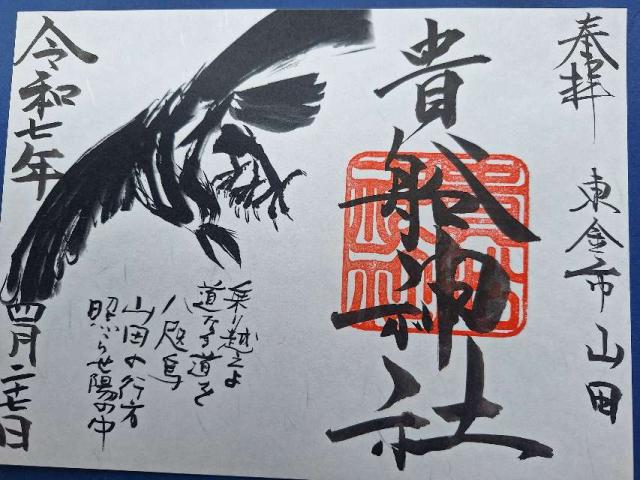 奉拝
東金市山田
貴船神社
乗り越えよ
道なき道を
八咫烏
山田の行方
照らせ陽の中
令和七年
四月二十七日